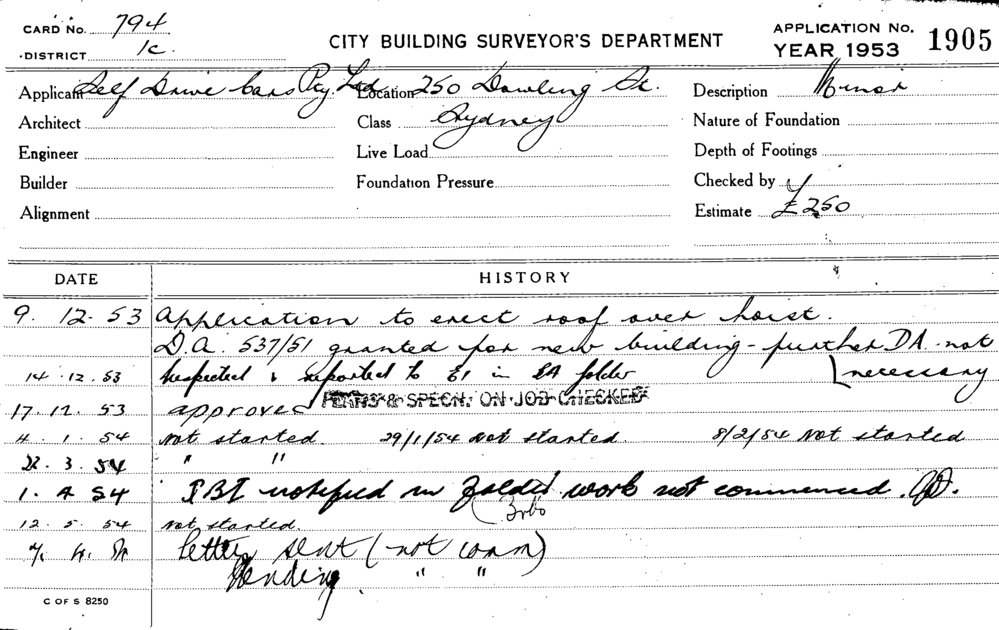 CARD No. 794
DISTRICT 1c.
CITY BUILDING SURVEYOR'S DEPARTMENT
APPLICATION No. 1905
YEAR 1953
Applicant Self Drive Cars Pty. Ltd.
Location 250 Dowling St.
Description Minor
Architect
Class Sydney
Nature of Foundation
Engineer
Live Load
Depth of Footings
Builder
Foundation Pressure
Checked by
Alignment
Estimate £250
DATE HISTORY
9. 12. 53 Application to erect roof over hoist.
D.A. 537/51 granted for new building - further DA not
14. 12. 53 Inspected & reported to E1 in BA folder necessary
17. 12. 53 approved PLANS & SPECN. ON JOB CHECKED
4. 1. 54 Not started. 29/1/54 Not started. 8/2/54 Not started
22. 3. 54 " "
1. 4 54 notified in folder work not commenced.
12. 5. 54 Not started.
letter sent (not comm)
Pending " "
C OF S 8250